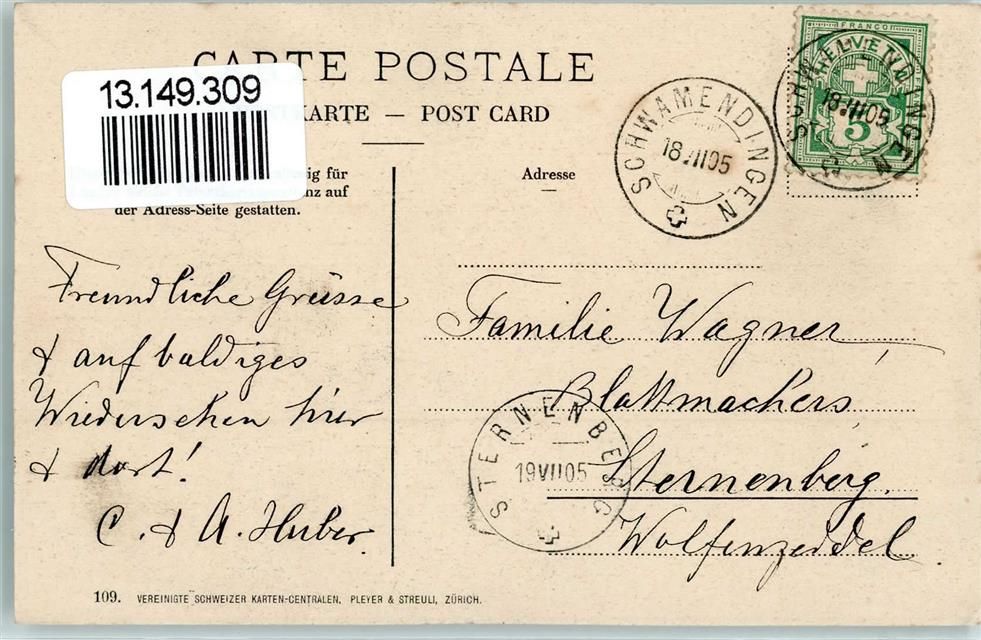 CARTE POSTALE
13.149.309
KARTE — POST CARD
für
auf
der Adress-Seite gestatten.
Adresse
FRANCO
HELVETIA
5
SCHWAMENDINGEN
18.VII05
SCHWAMENDINGEN
18.VII05
Freundliche Grüsse
& auf baldiges
Wiedersehen hier
& dort!
C. & A. Huber.
Familie Wagner,
Blattmachers,
Sternenberg.
Wolfenzeddel.
STERNENBERG
19VII05
109. VEREINIGTE SCHWEIZER KARTEN-CENTRALEN, PLEYER & STREULI, ZÜRICH.